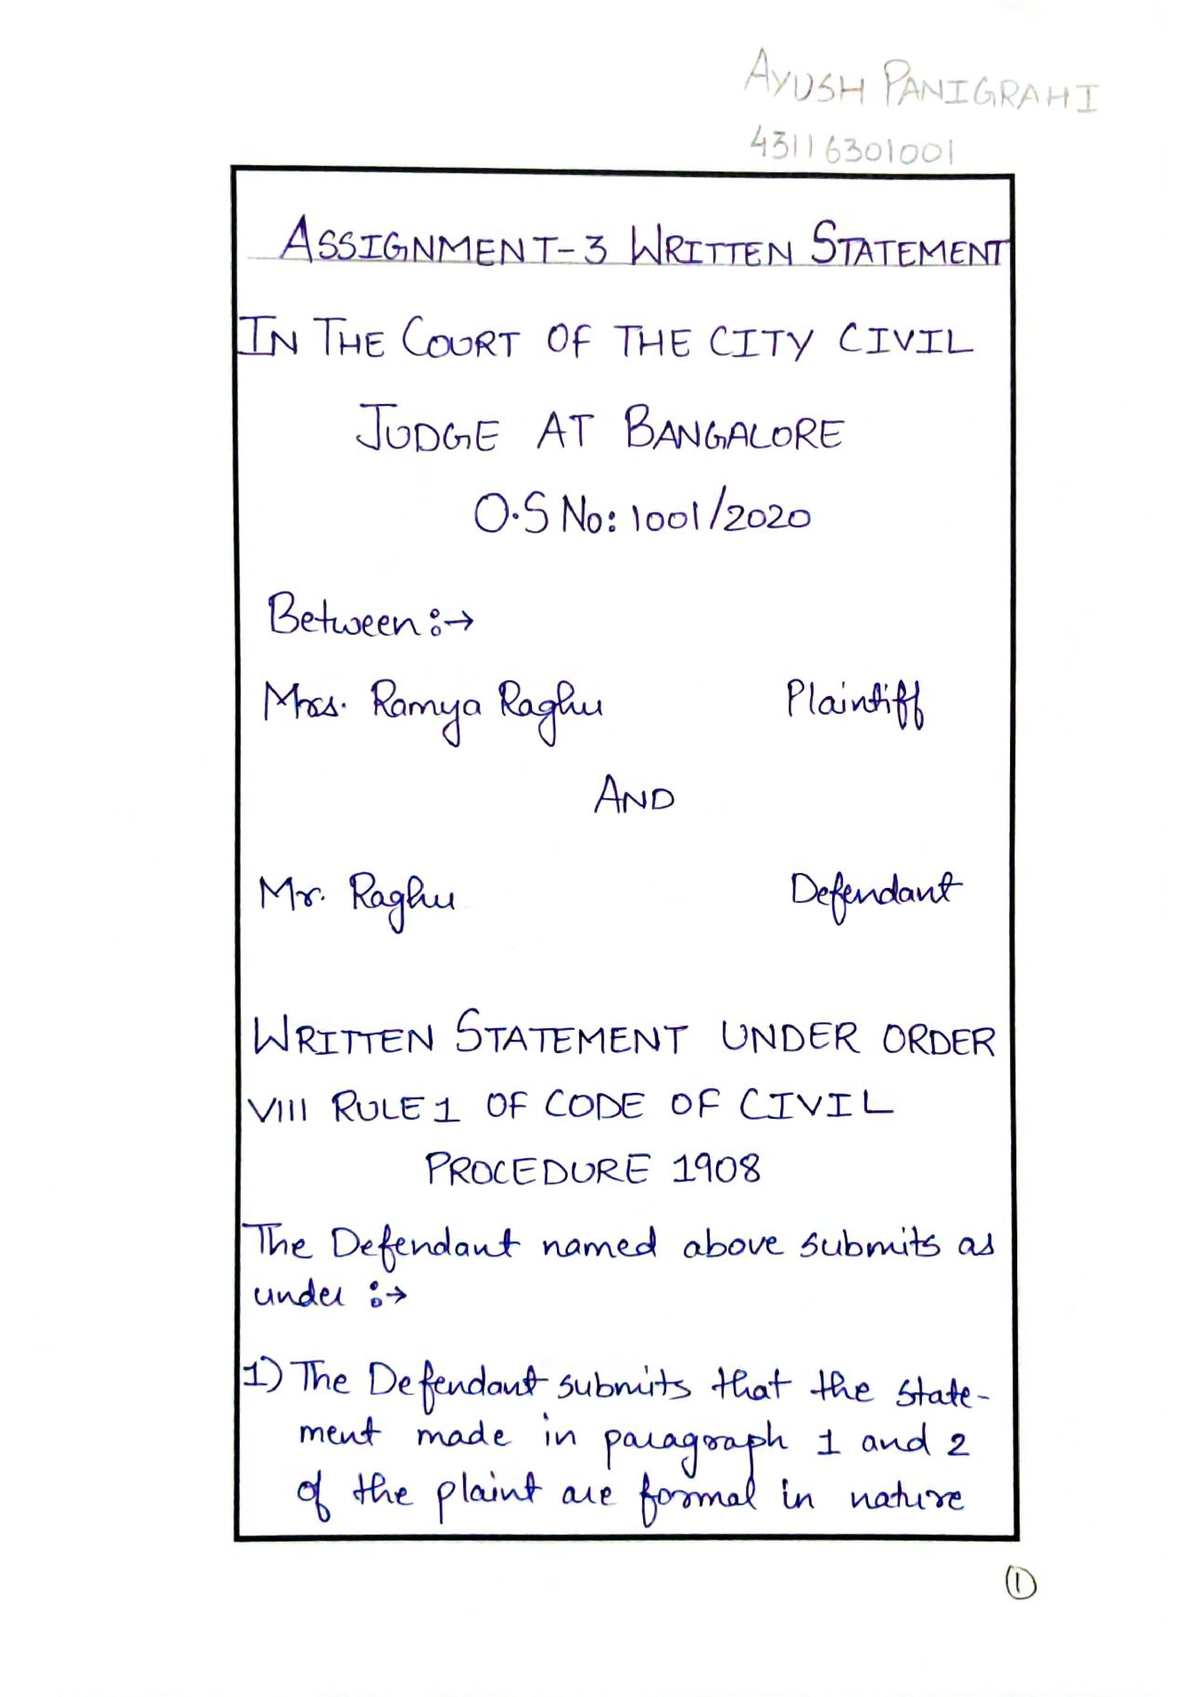 AYUSH PANIGRAHI
43116301001
ASSIGNMENT-3 WRITTEN STATEMENT
IN THE COURT OF THE CITY CIVIL
JUDGE AT BANGALORE
O.S No: 1001/2020
Between :→
Mrs. Ramya Raghu Plaintiff
AND
Mr. Raghu Defendant
WRITTEN STATEMENT UNDER ORDER
VIII RULE 1 OF CODE OF CIVIL
PROCEDURE 1908
The Defendant named above submits as
under :→
1) The Defendant submits that the state-
ment made in paragraph 1 and 2
of the plaint are formal in nature
1